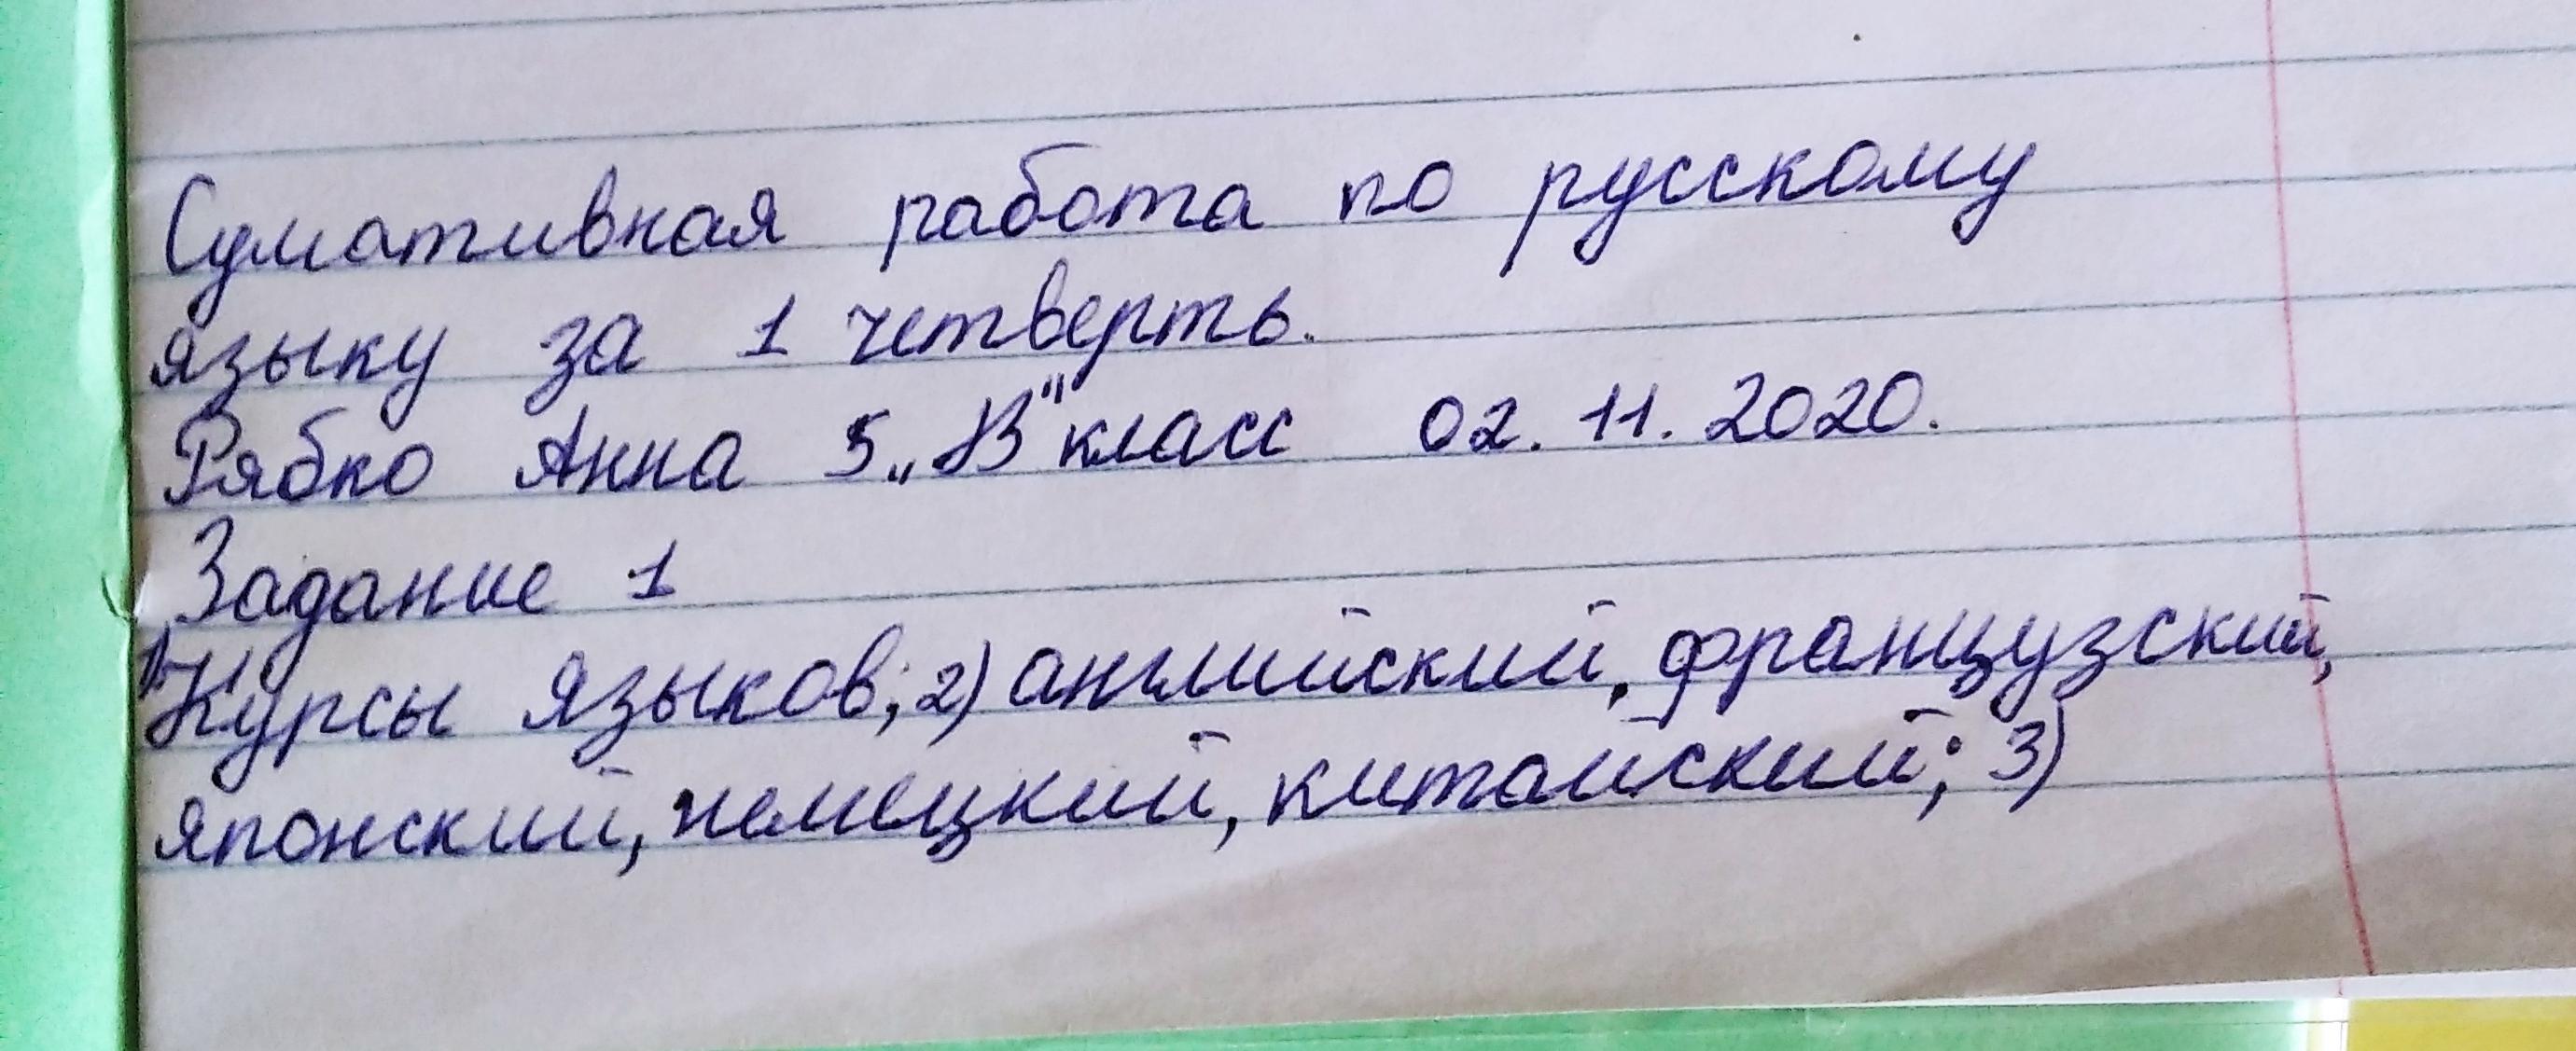 Сумативная работа по русскому
языку за 1 четверть.
Рябко Анна 5 „В" класс 02.11.2020.
Задание 1
1) Курсы языков; 2) английский, французский,
японский, немецкий, китайский; 3)